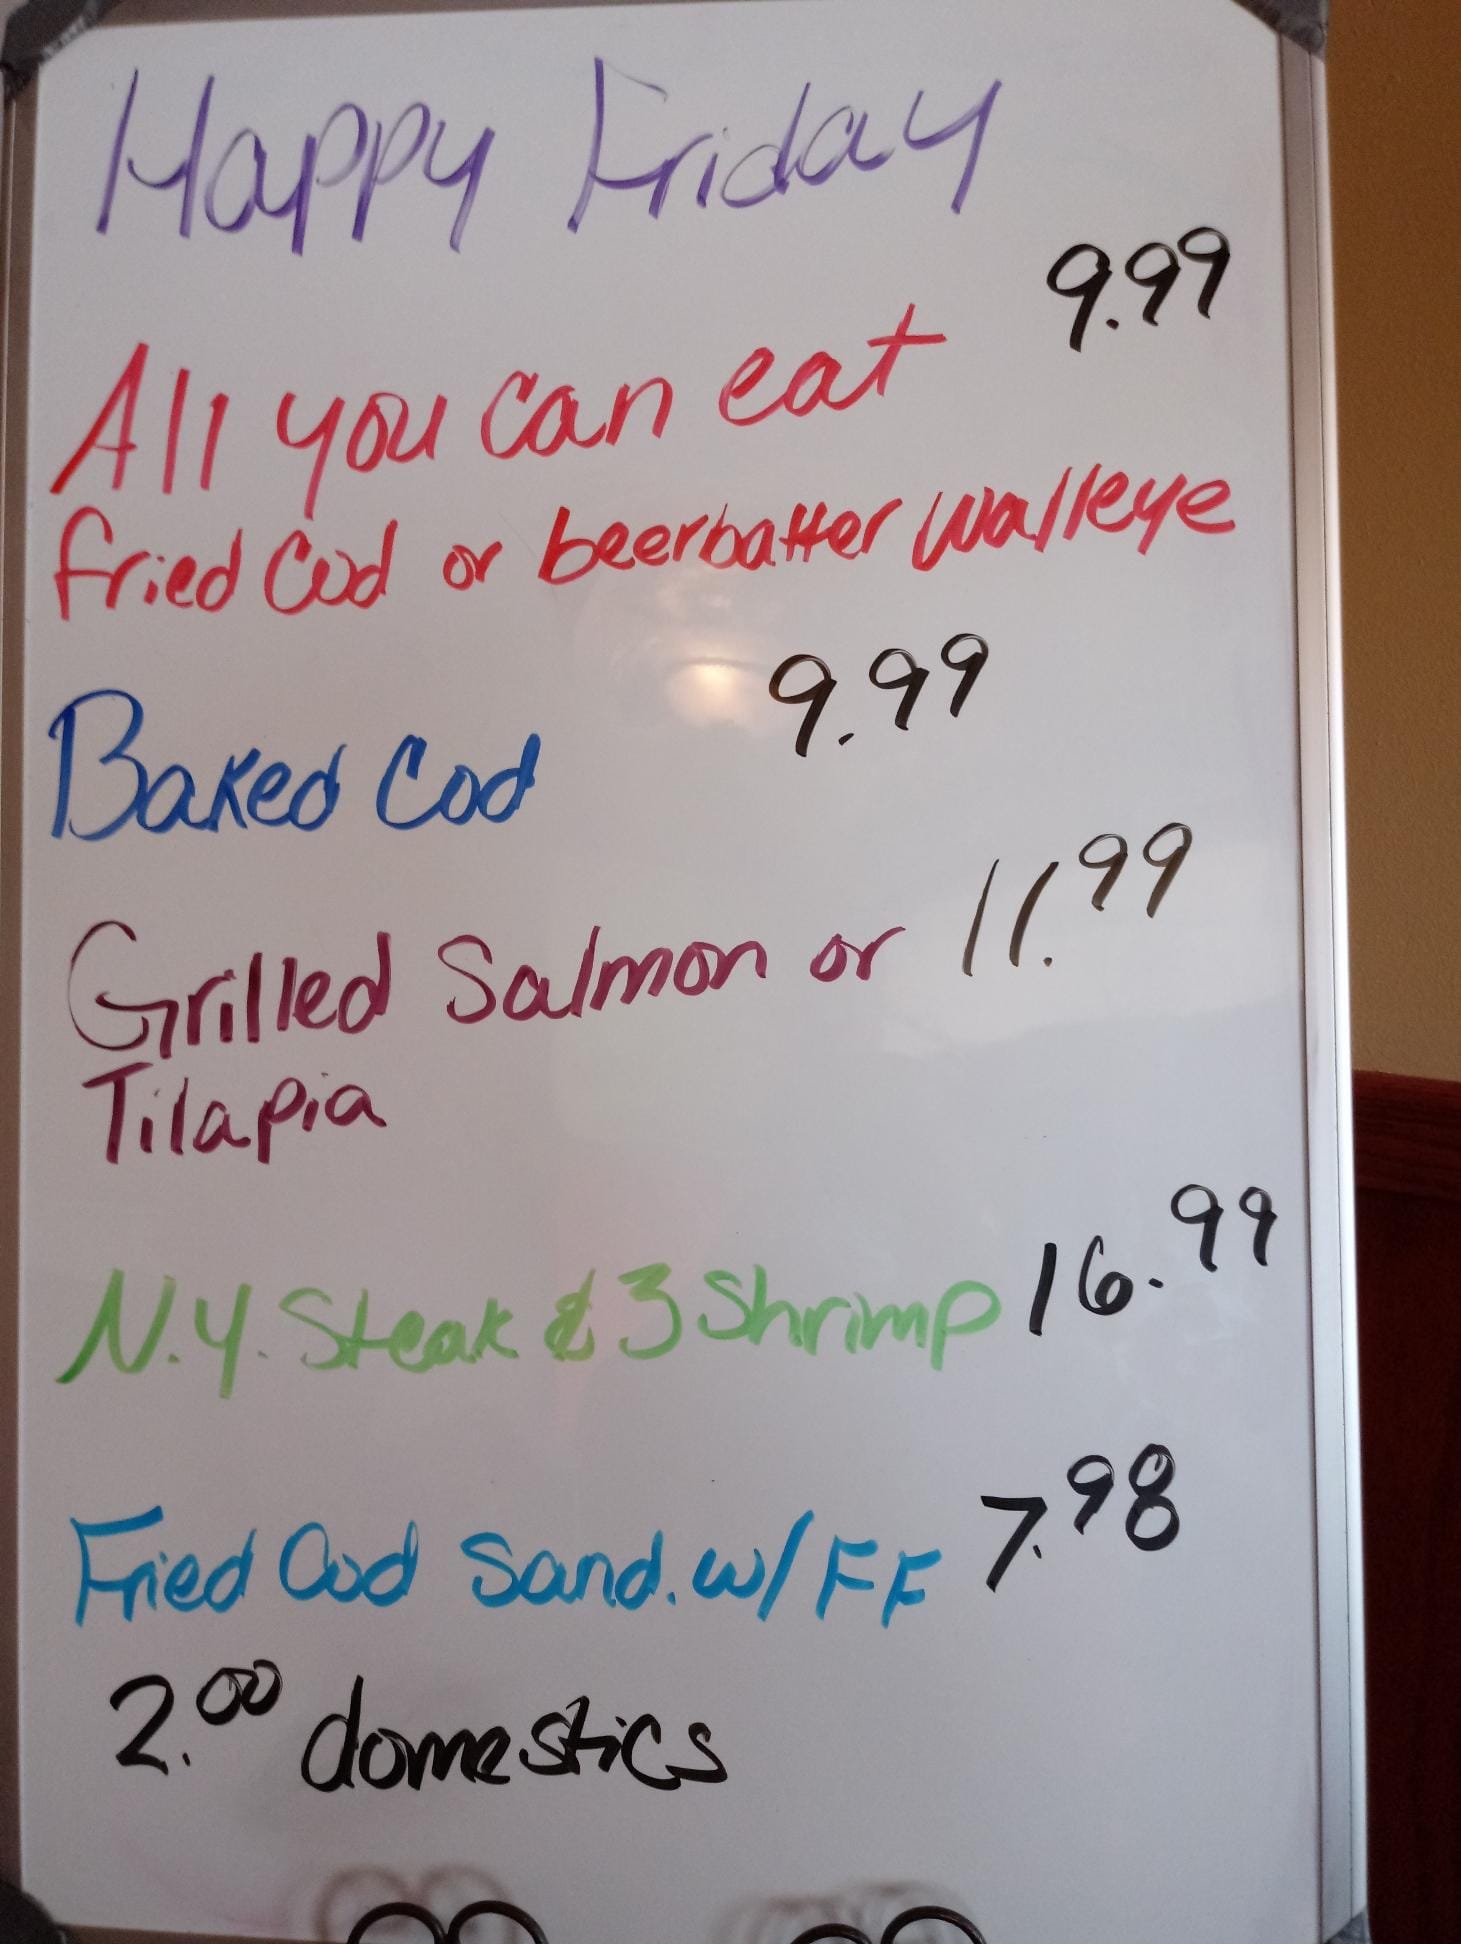 Happy Friday
All you can eat 9.99
fried Cod or beerbatter walleye
Baked Cod 9.99
Grilled Salmon or 11.99
Tilapia
N.Y. Steak & 3 Shrimp 16.99
Fried Cod Sand. w/ FF 7.98
2.00 domestics